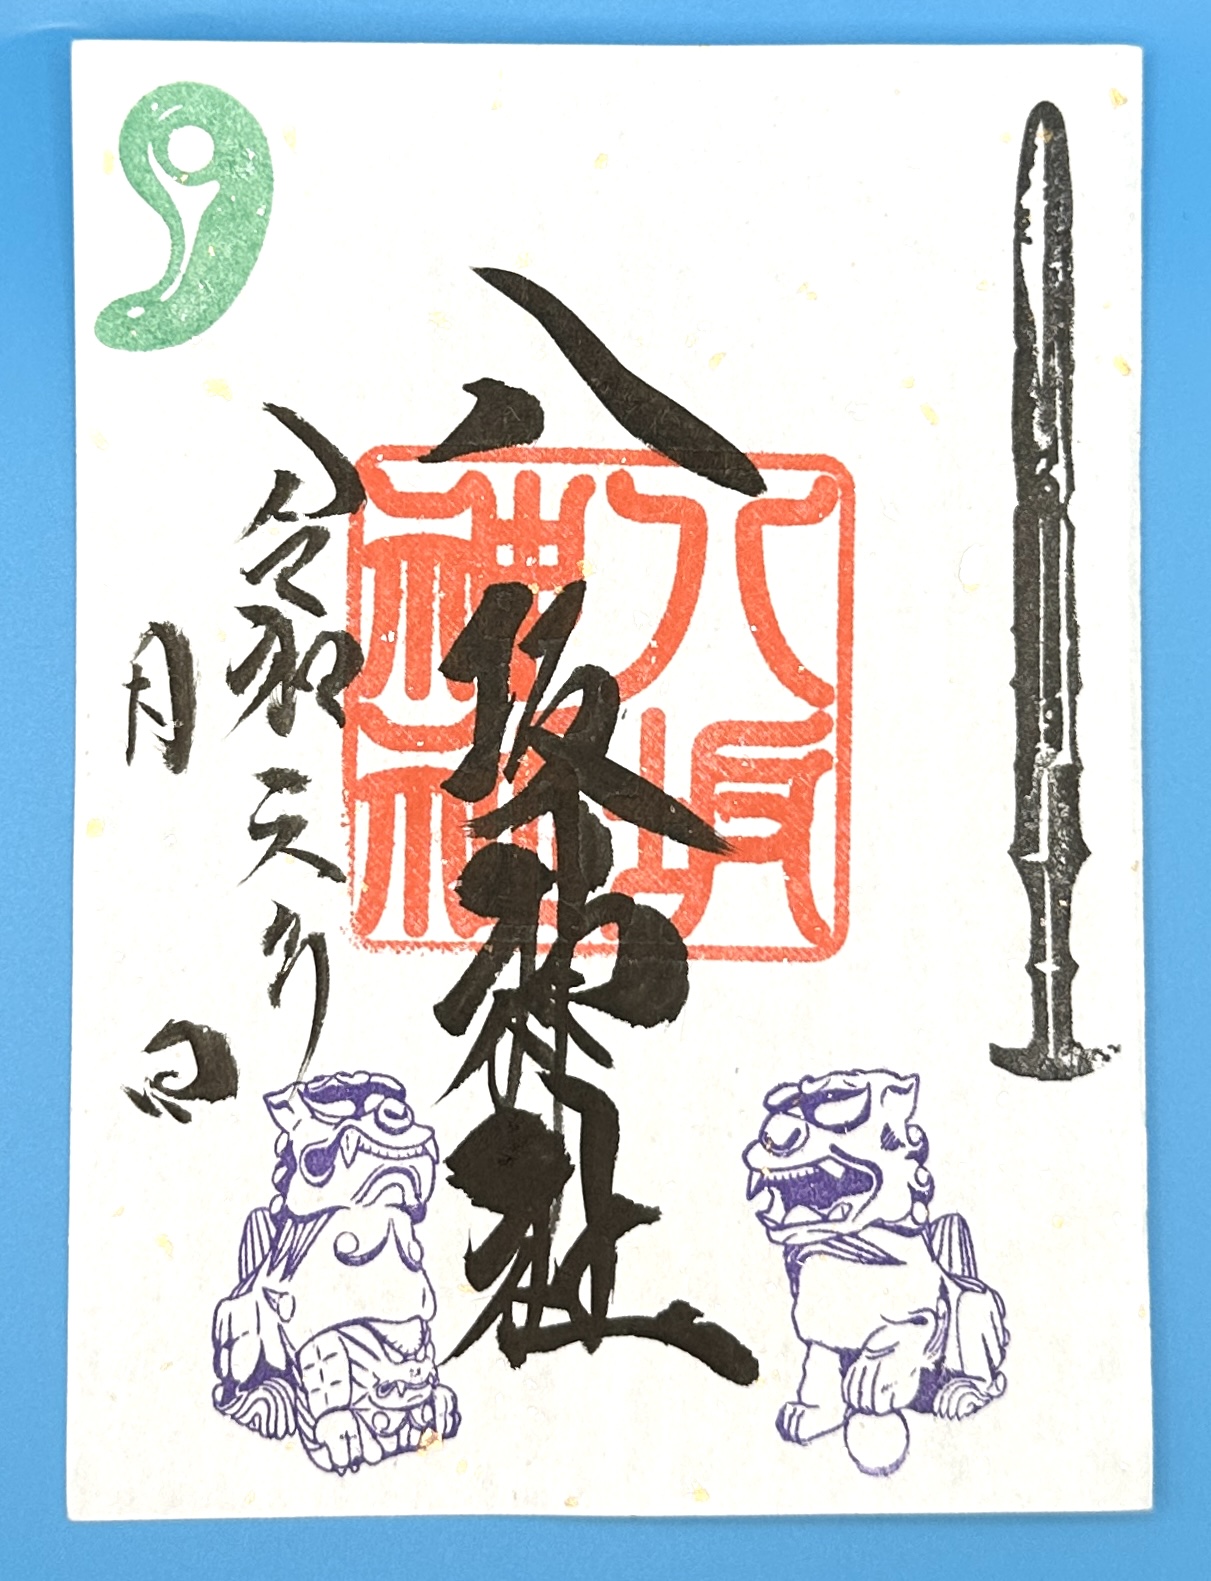 八坂神社
八坂
神社
令和元年
月
日